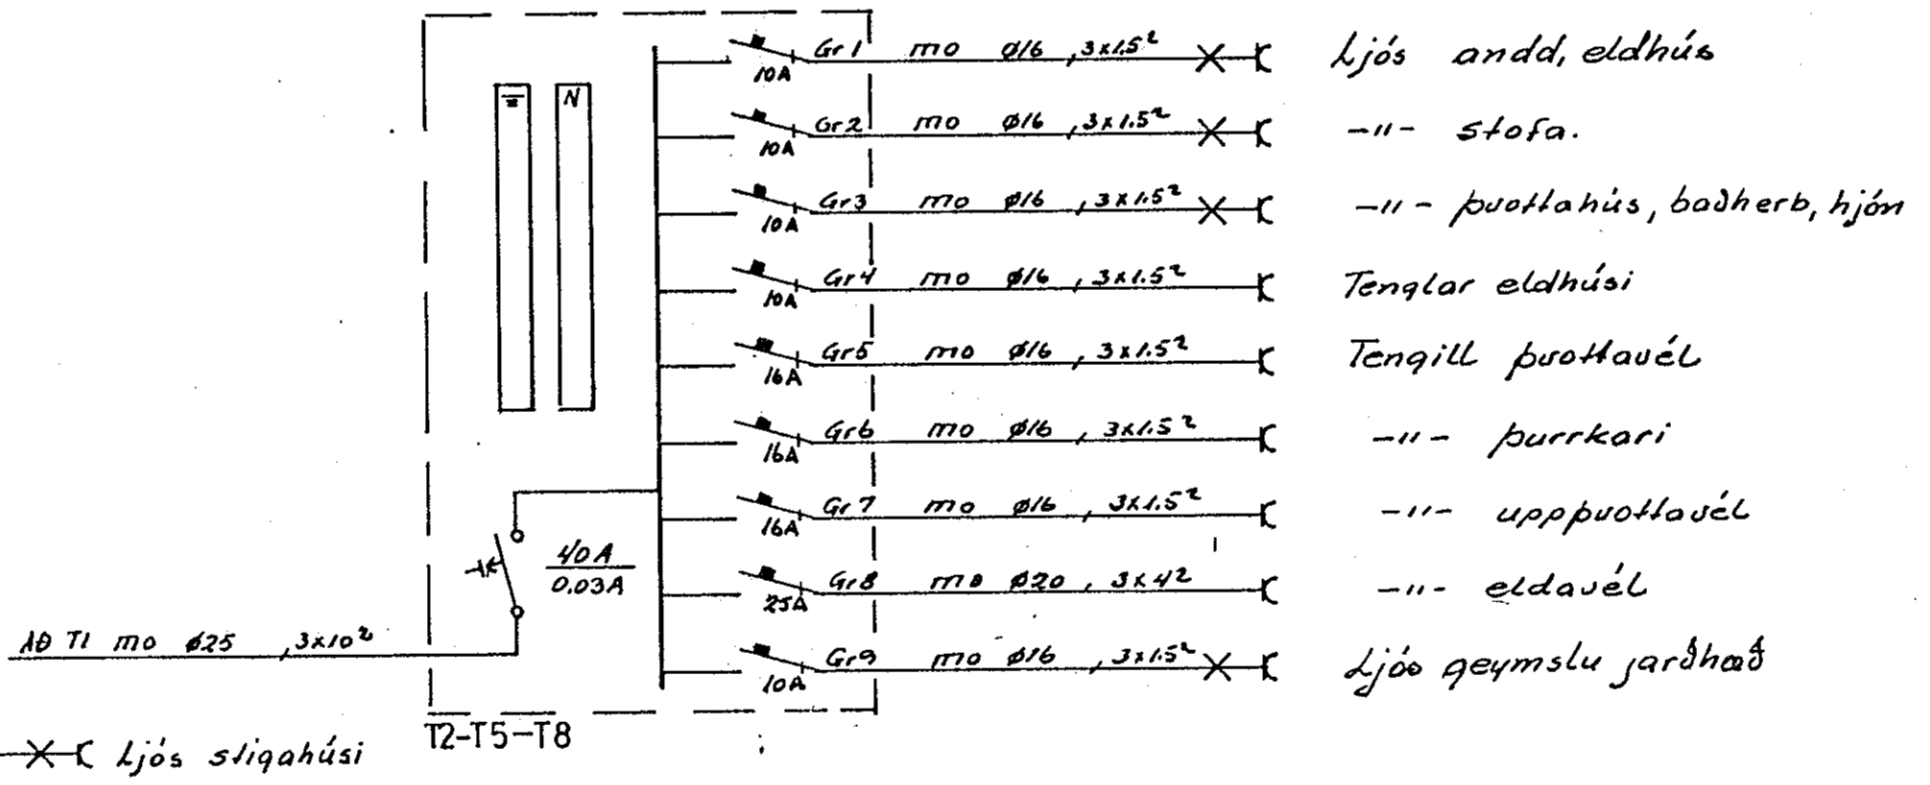 Gr1 mo ø16, 3x1.5² Ljós andd, eldhús
10A
⏚ N
Gr2 mo ø16, 3x1.5² -"- stofa.
10A
Gr3 mo ø16, 3x1.5² -"- þvottahús, baðherb, hjón
10A
Gr4 mo ø16, 3x1.5² Tenglar eldhúsi
10A
Gr5 mo ø16, 3x1.5² Tengill þvottavél
16A
Gr6 mo ø16, 3x1.5² -"- þurrkari
16A
Gr7 mo ø16, 3x1.5² -"- uppþvottavél
16A
40A
0.03A
Gr8 mo ø20, 3x4² -"- eldavél
25A
AÐ T1 mo ø25, 3x10²
Gr9 mo ø16, 3x1.5² Ljós geymslu jarðhæð
10A
T2-T5-T8
Ljós stigahúsi